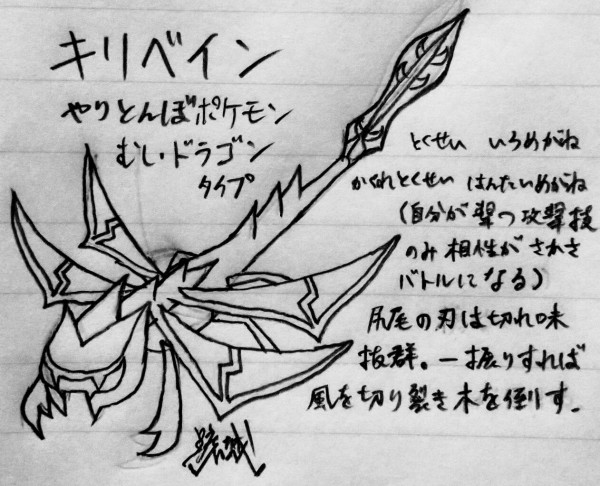 キリベイン
やりとんぼポケモン
むし・ドラゴン
タイプ
とくせい いろめがね
かくれとくせい はんたいめがね
(自分が撃つ攻撃技
のみ相性がさかさ
バトルになる)
尻尾の刃は切れ味
抜群。一振りすれば
風を切り裂き木を倒す.